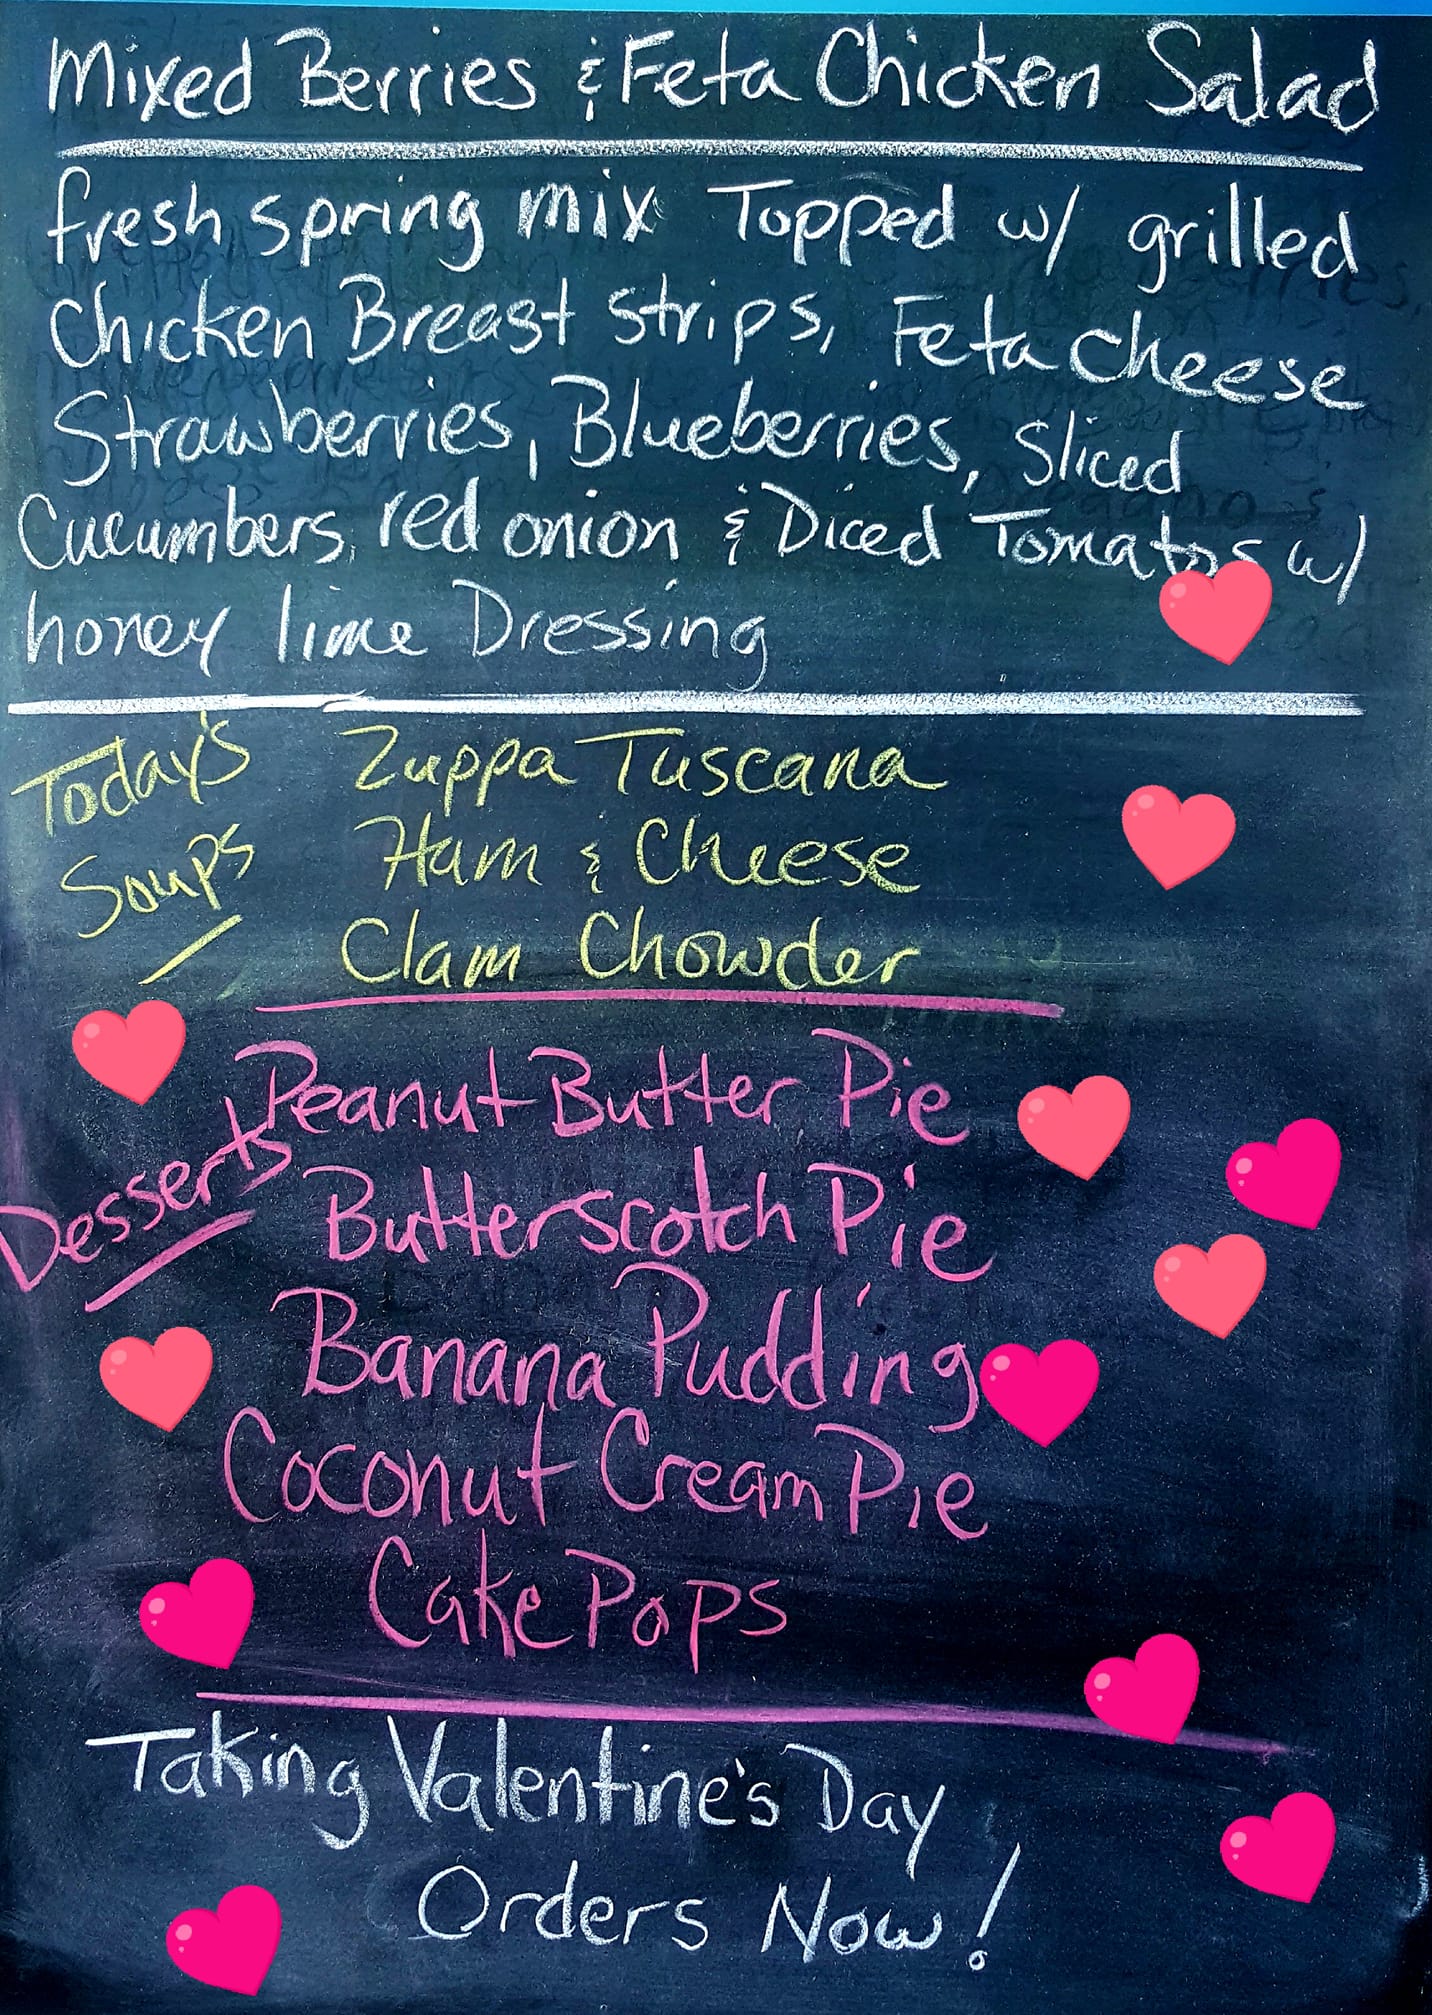 Mixed Berries & Feta Chicken Salad
fresh spring mix Topped w/ grilled
Chicken Breast strips, Feta Cheese
Strawberries, Blueberries, Sliced
Cucumbers, red onion & Diced Tomatos w/
honey lime Dressing
Today's Soups
Zuppa Tuscana
Ham & Cheese
Clam Chowder
Desserts
Peanut Butter Pie
Butterscotch Pie
Banana Pudding
Coconut Cream Pie
Cake Pops
Taking Valentine's Day
Orders Now!